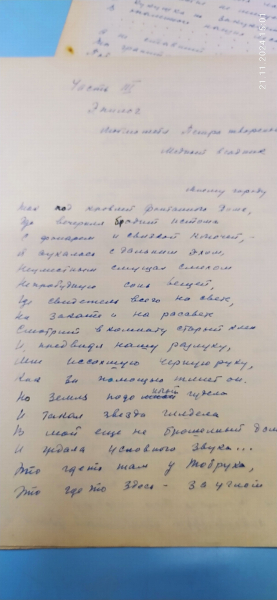 21.11.2024 15:01
Часть III
Эпилог
Люблю тебя, Петра творенье
Медный всадник
Моему городу
Так под кровлей фонтанного Дома,
Где вечерняя бродит истома
С фонарем и связкой ключей, -
Я аукалась с дальним эхом,
Неуместным смущая смехом
Непробудную сонь вещей,
Где свидетель всего на свете,
На закате и на рассвете
Смотрит в комнату старый клен
И, предвидя нашу разлуку,
Мне иссохшую черную руку,
Как за помощью тянет он.
Но земля подо мной гудела
И такая звезда глядела
В мой еще не брошенный дом
И ждала условного звука...
Это где-то там у Тобрука,
Это где то здесь - за углом